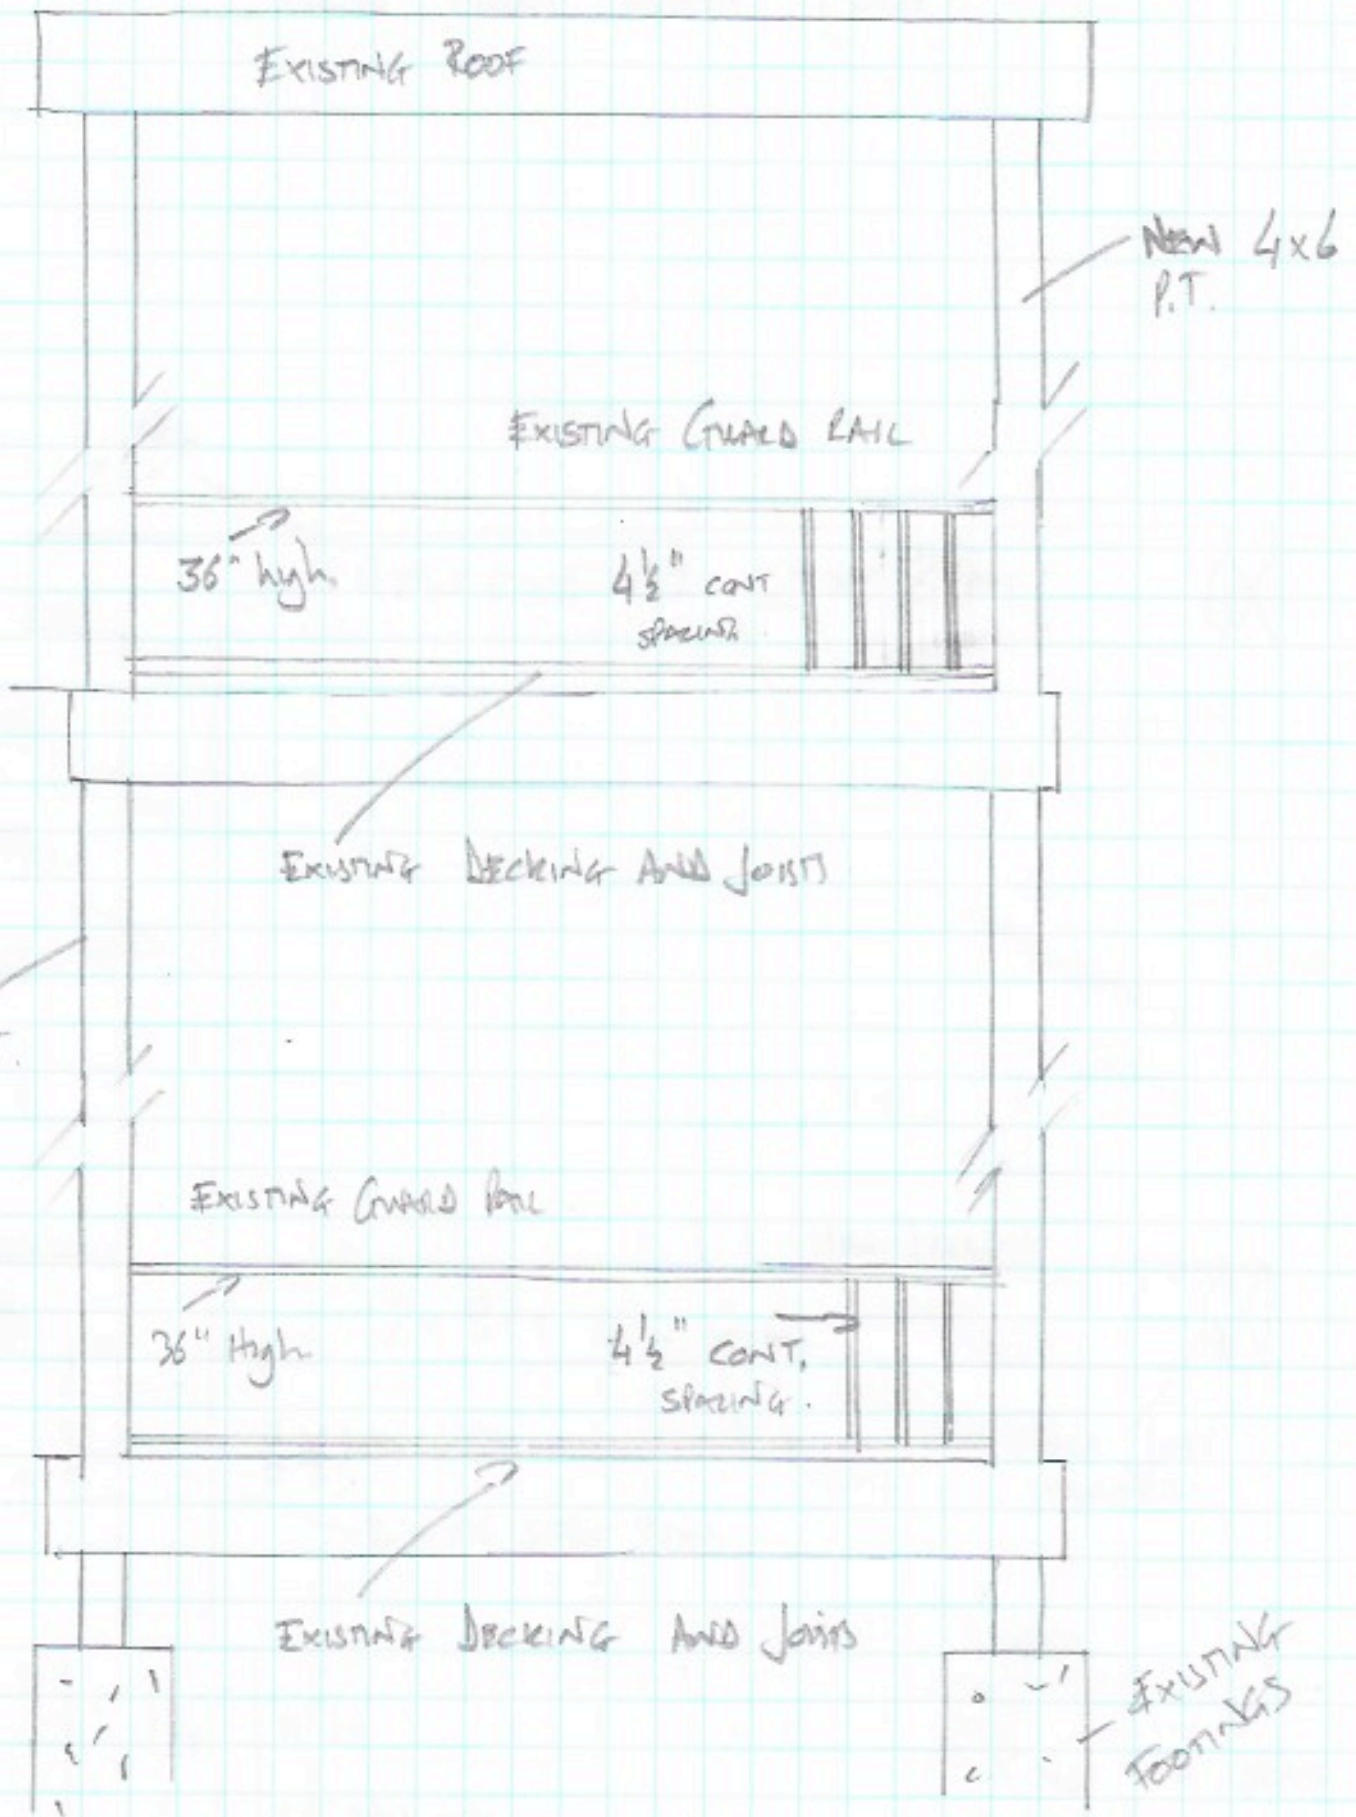 EXISTING ROOF
NEW 4x6
P.T.
EXISTING GUARD RAIL
36" high.
4½" CONT
SPACING
EXISTING DECKING AND JOISTS
EXISTING GUARD RAIL
36" High
4½" CONT.
SPACING.
EXISTING DECKING AND JOISTS
EXISTING
FOOTINGS